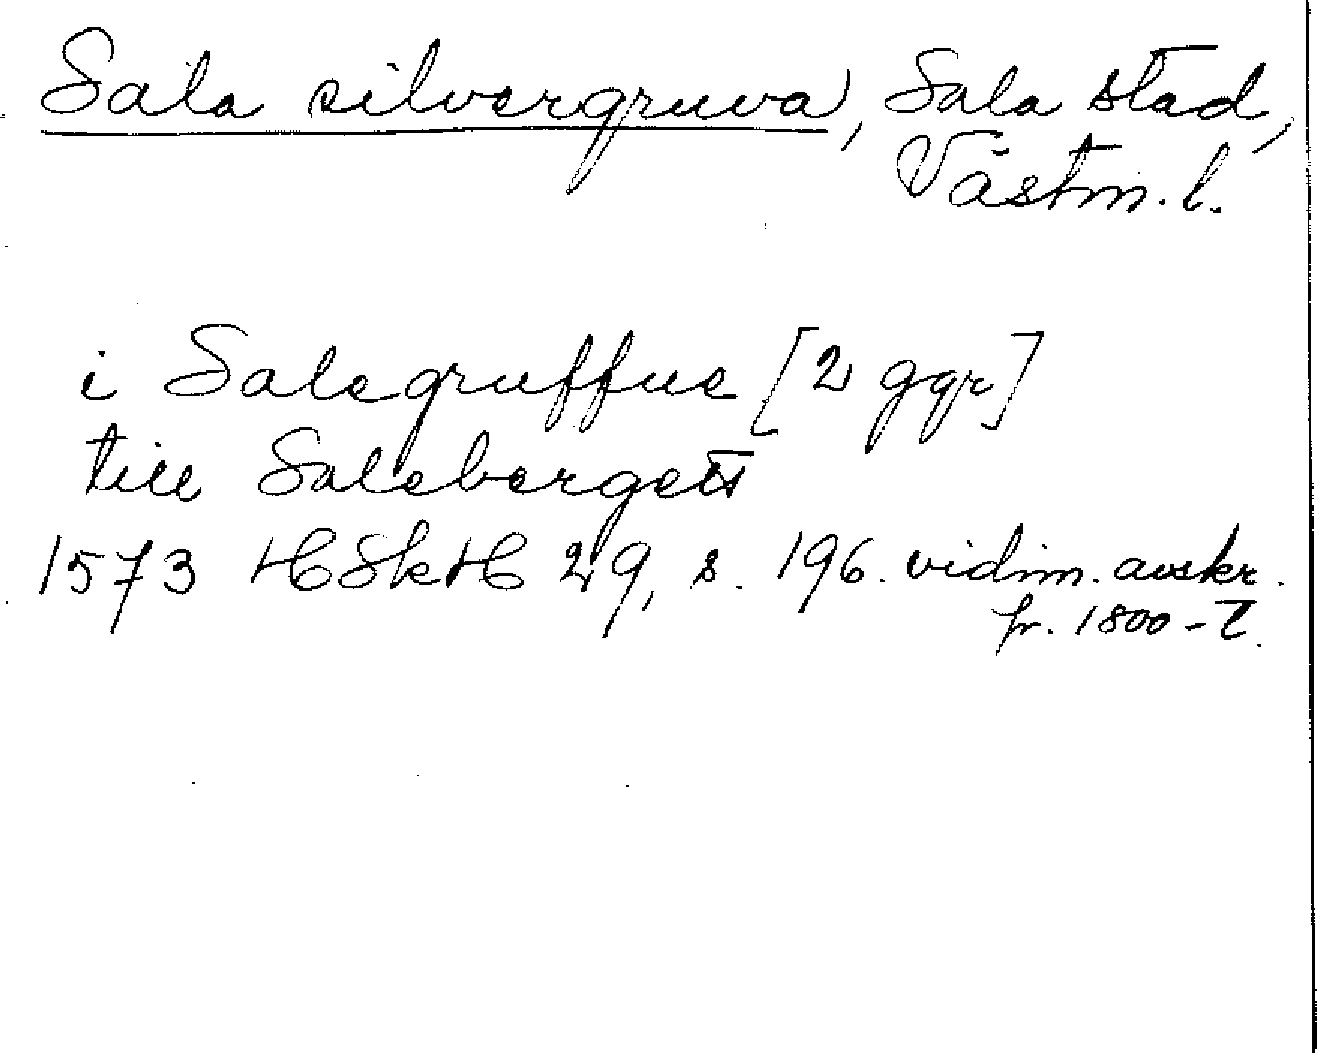 Sala silvergruva, Sala stad,
Västm. l.
i Salegruffue [2 ggr]
till Salebergett
1573 HSkH 29, s. 196. vidim. avskr.
fr. 1800-t.